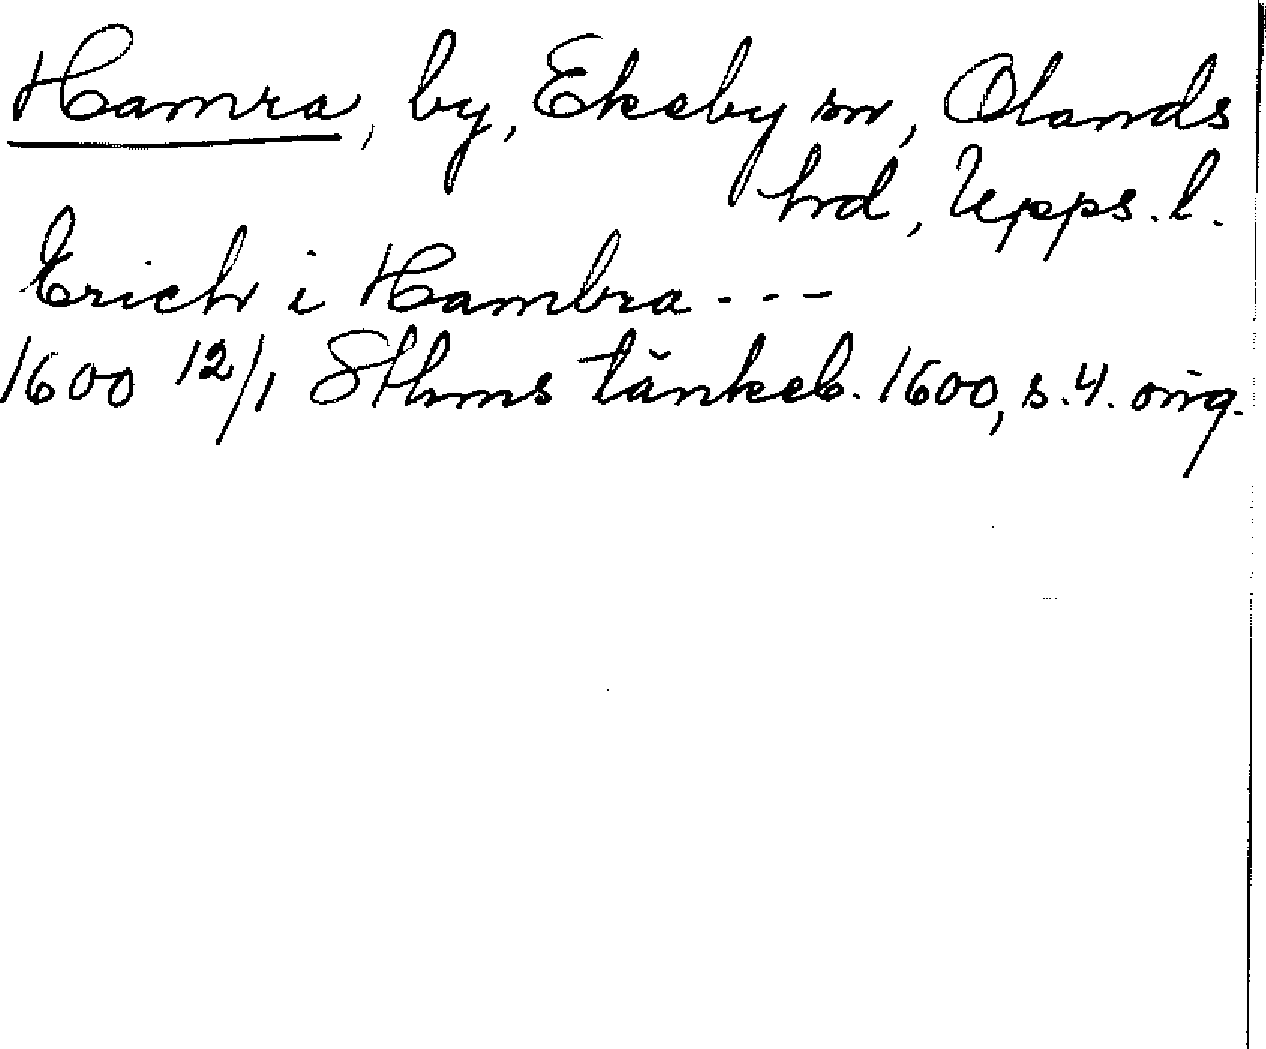 Hamra, by, Ekeby sn, Olands
hrd, Upps. l.
Erich i Hambra - - -
1600 12/1 Sthms tänkeb. 1600, s. 4. orig.